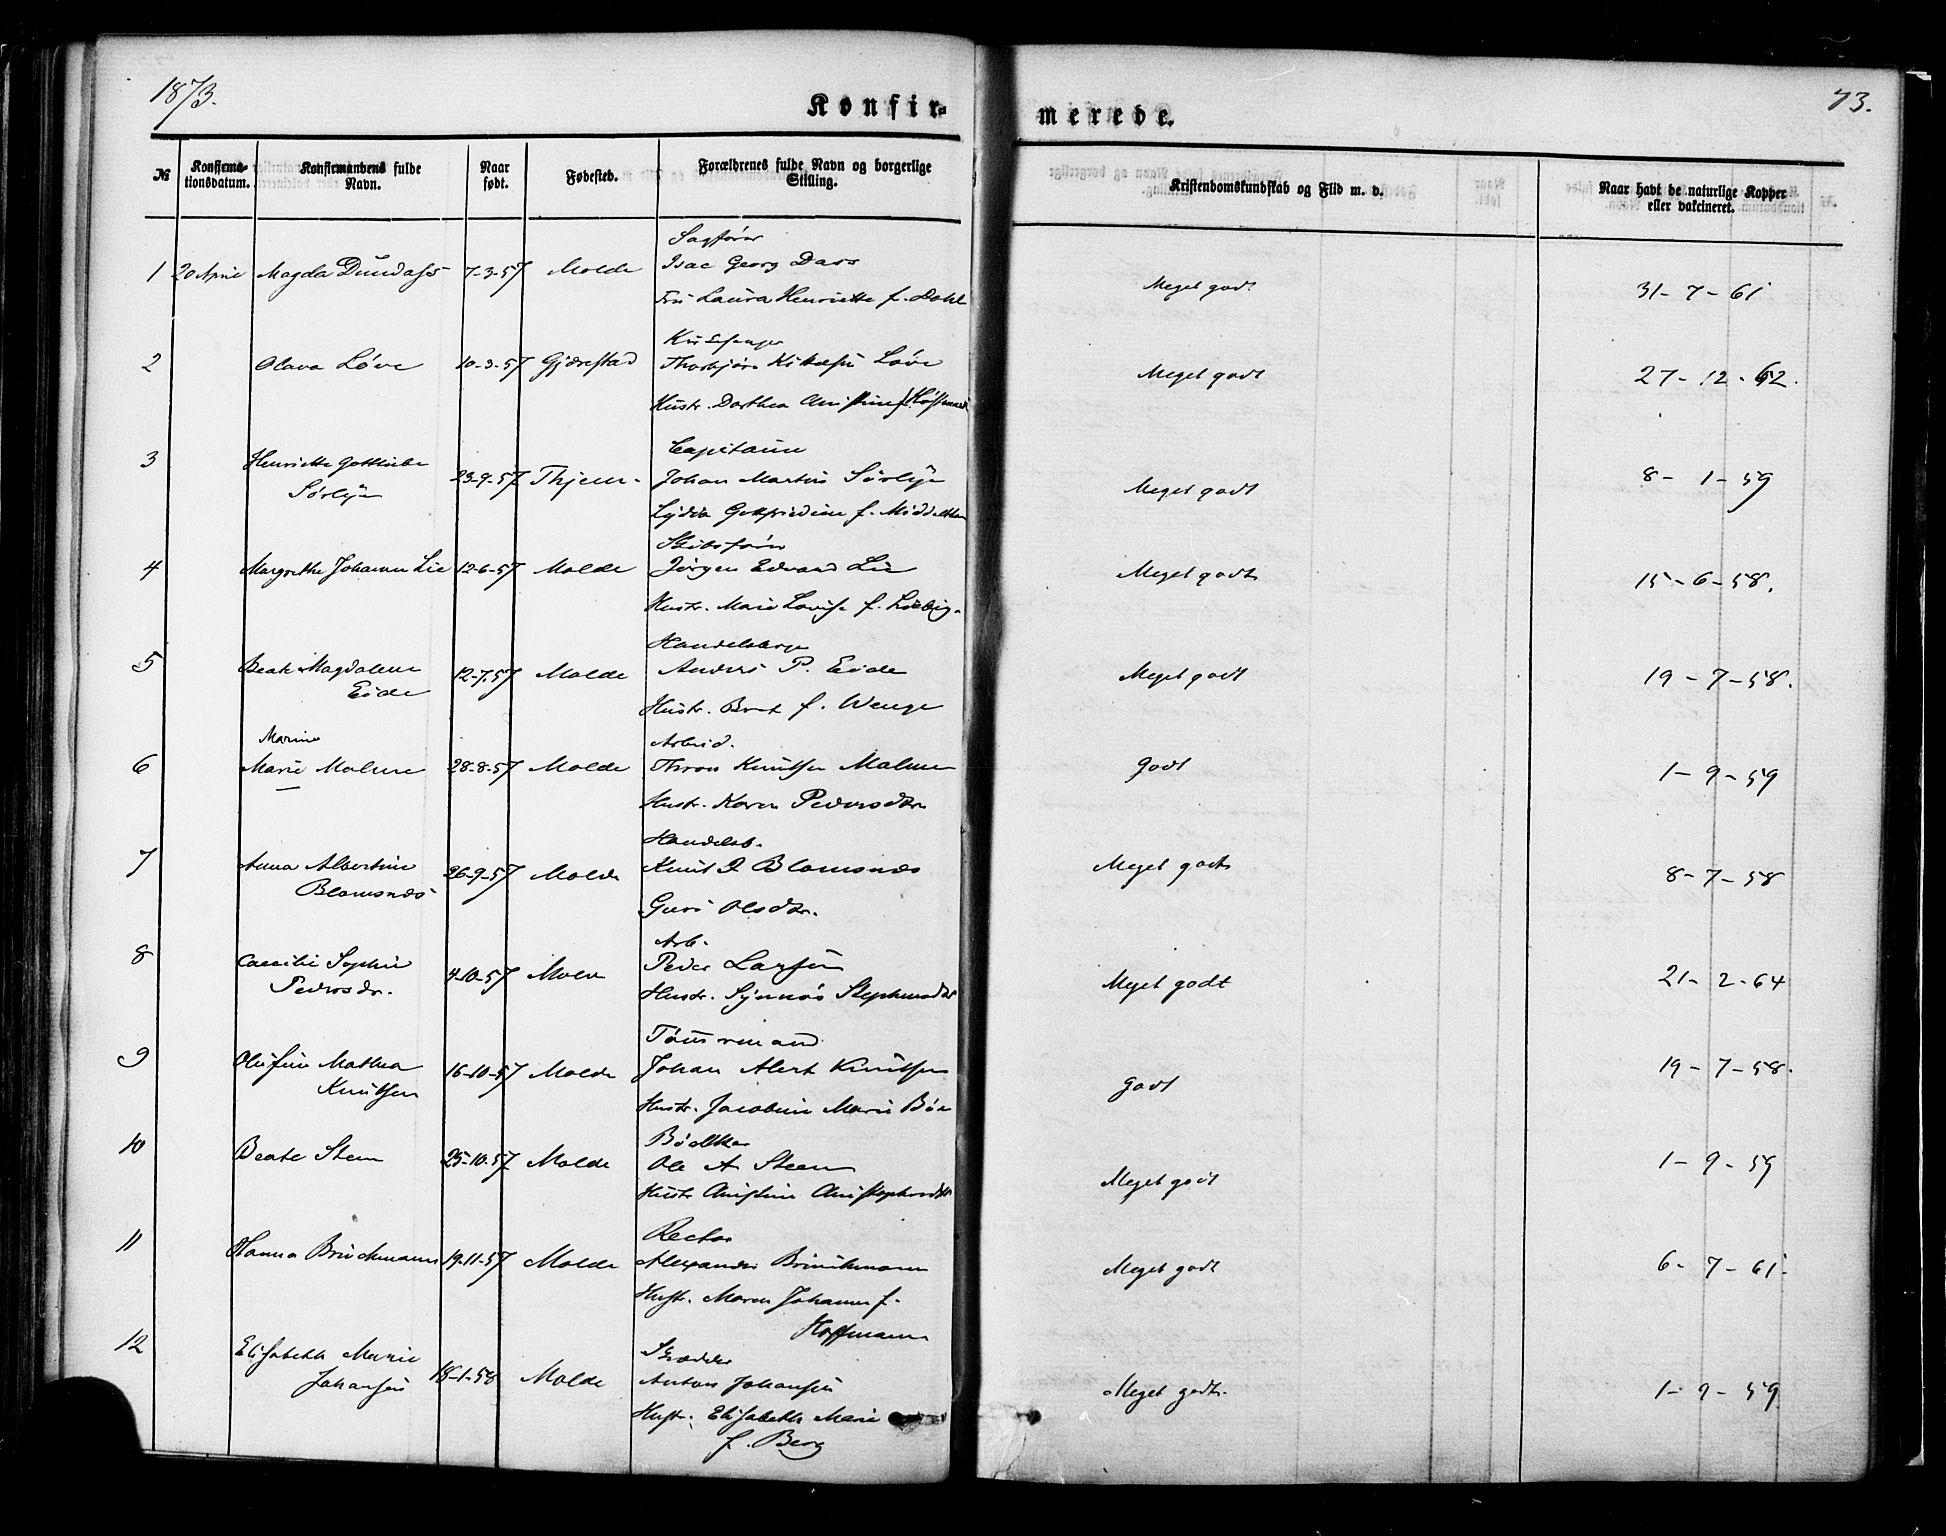 1873.
73.
Konfir-
merede.
№
Konfirma-
tionsdatum.
Konfirmandens fulde
Navn.
Naar
født.
Fødested.
Forældrenes fulde Navn og borgerlige
Stilling.
Kristendomskundskab og Flid m. v.
Naar havt de naturlige Kopper
eller vakcineret.
Sagfører
1 20 April Magda Dundass 7-3-57 Molde Isac Georg Dass Meget godt 31-7-61
Fru Laura Henriette f. Dahl
2 Olava Löve 10-3-57 Gjerestad Thorbjörn Löve Meget godt 27-12-62.
Hustr. Dorthea Christine f.
Capitain
3 Henriette Gottliebe 23-9-57 Johan Martin Sörlye Meget godt 8-1-59
Sörlye
Lydia f.
Skibsförer
4 Margrethe Johanne Lie 12-6-57 Molde Jörgen Edvard Lie Meget godt 15-6-58.
Hustr. Marie Lovise f.
5 Beate Magdalene 12-7-57 Molde Anders P. Eide Meget godt 19-7-58.
Eide
Hustr. Brit f. Wenge
Marine Arbeid.
6 Marie Malme 28-8-57 Molde Knutsen Malme Godt 1-9-59
Hustr. Karen Pedersdtr
Handelsb.
7 Anna Albertine 26-9-57 Molde Knut Blomsnæs Meget godt 8-7-58
Blomsnæs
Guri Olsdtr.
Arb.
8 Caecilie Sophie 4-10-57 Molde Peder Larsen Meget godt 21-2-64
Pedersdr.
Hustr. Synnös Stephensdtr
Tömmermand
9 Olufine Mathea 16-10-57 Molde Johan Alert Knutsen Godt 19-7-58.
Knutsen
Hustr. Jacobine Marie Böe
Bödker
10 Beate Steen 25-10-57 Molde Ole A Steen Meget godt 1-9-59
Hustr Christine Christophersdtr
Rector
11 Hanna Brinchmann 19-11-57 Molde Alexander Brinchmann Meget godt 6-7-61.
Hustr. Maren Johanne f.
Hoffmann
12 Elisabeth Marie 18-1-58 Molde Skrædder Meget godt. 1-9-59
Johansen
Anton Johansen
Hustr. Elisabeth Marie
f. Berg